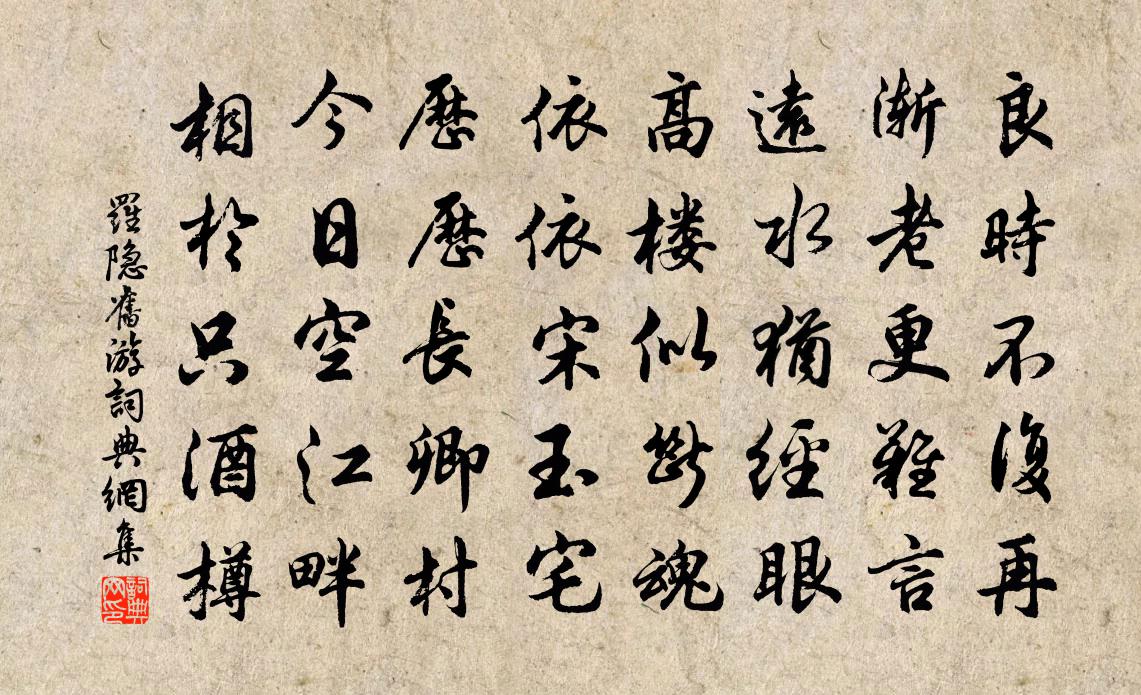 良時不復再
漸老更難言
遠水猶經眼
高楼似斷魂
依依宋玉宅
歷歷長卿村
今日空江畔
相於只酒樽
羅隐舊游詞典網集
詞典網印